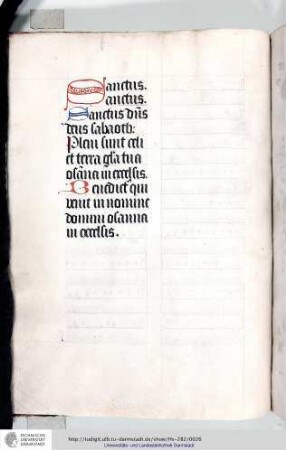 Sanctus.
Sanctus.
Sanctus dn̄s
deus sabaoth:
Pleni sunt celi
et terra gl̄a tua
osāna in excelsis.
Benedict qui
venit in nomine
domini osanna
in excelsis.
TECHNISCHE
UNIVERSITÄT
DARMSTADT
http://tudigit.ulb.tu-darmstadt.de/show/Hs-282/0026
Universitäts- und Landesbibliothek Darmstadt